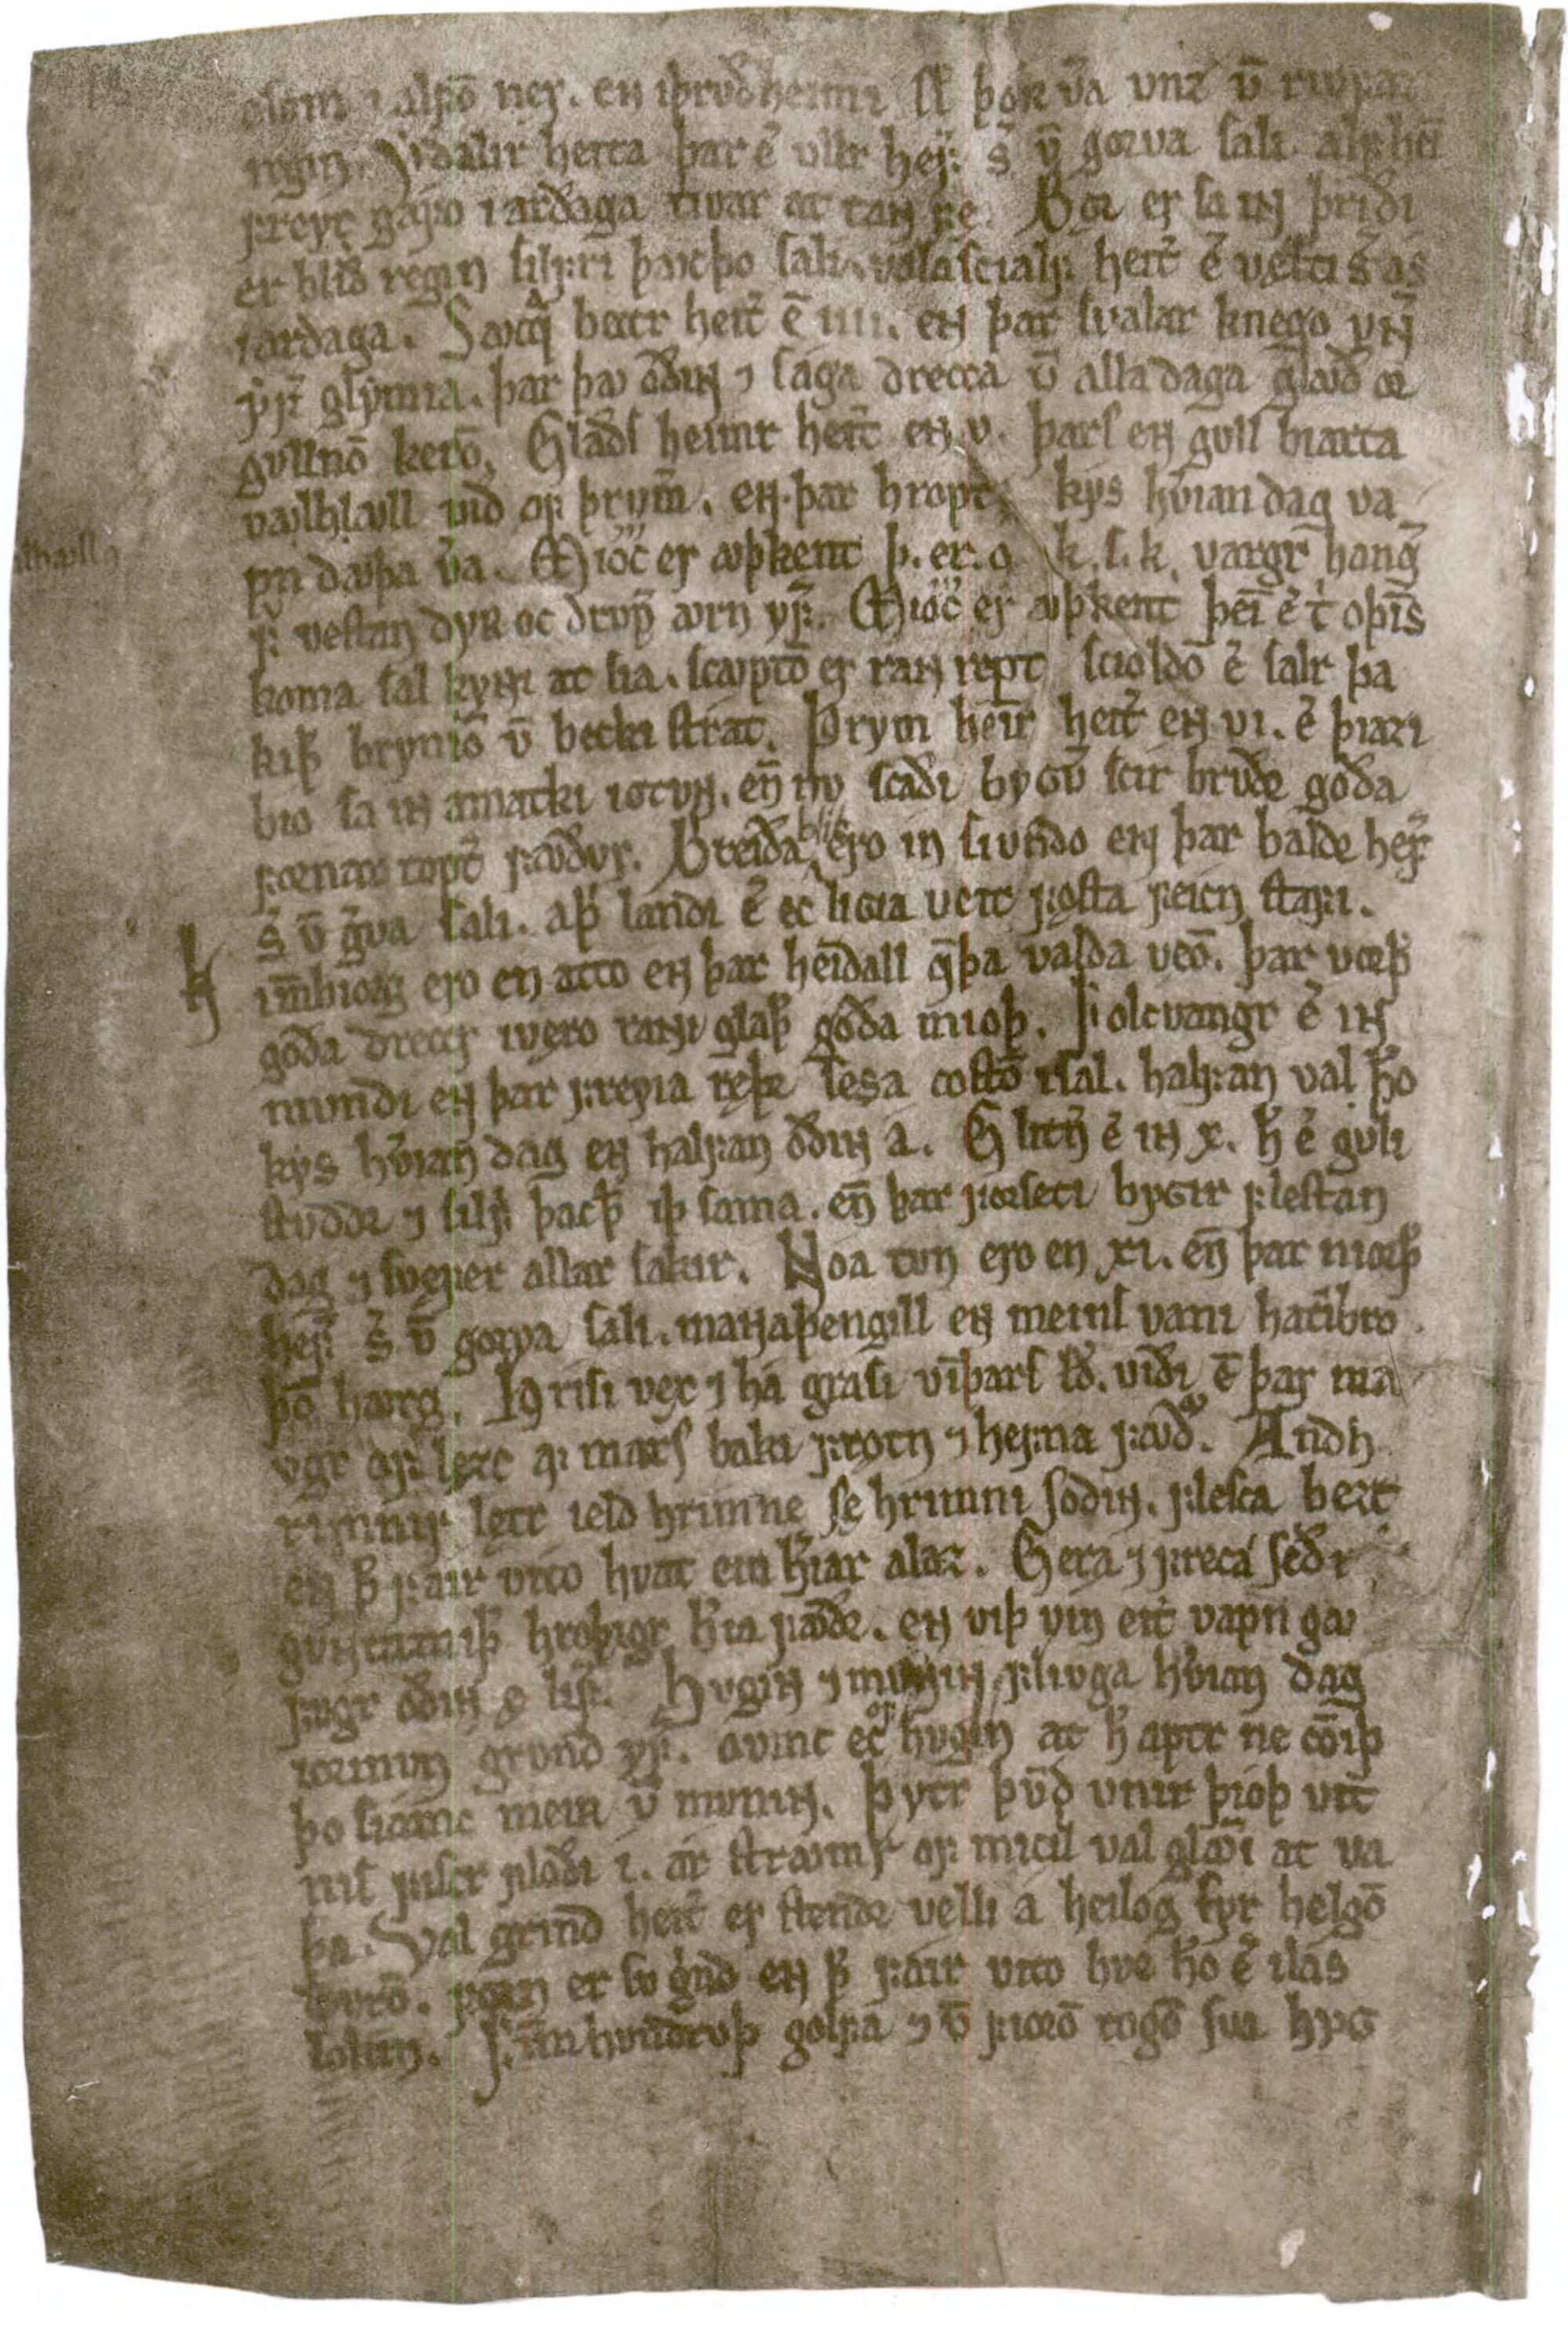 asom ⁊ alfō ner. en iþrvðheimi sl̄ þōʀ v̄a vnz v̄ rivfaz
regin. Ydalir heita þar ē ullr hef͛ s͛ v̄ gorva sali. alfhei
freyr gafo i ardaga tivar at tanfe. Bǫr er sa in þriði
er blið regin silfri þavcþo sali. valascialf heit͛ ē velti s͛ ás
i ardaga. Savcq beccr heit͛ ē iiii. en þar svalar knego vɴ͛
yf͛ glymia. þar þav oðiɴ ⁊ saga drecca v̄ alla daga glavð ór
gvllnō kerō. Glaðs heimr heit͛ eɴ v. þars en gvll biarta
valhavll við of þrvm͛. eɴ þar hroptr kys hv͛ian dag va
pn davþa v͛a. Mioc er avþkent þ. er. o k. s. k. vargr hang͛
f͛ vestan dyʀ oc drvp͛ avrn yf͛. Mioc er avþkent þei ē t́ oþīs
koma sal kyɴi at sia. scavptō er raɴ rept scioldō ē salr þa
kiþ brynīo v̄ becki strát. Þrym heīr heit͛ eɴ vi. ē þiazi
bio sa in amatki iotvɴ. en̄ nv scaði bygv͛ scír brvðr goða
fornar topt͛ favðvr. Breiða blic ero in sivndo eɴ þar baldr hef͛
s͛ v̄ g͛va sali. aþ landi ē ec licia veit fæsta feicn stafi.
h im̄biorg ero en atto eɴ þar heīdall q̄þa valda veō. þar vorþ͛
goða dreccr ivęro raɴi glaþ͛ goða mioþ. Folcvangr ē iɴ
nivndi eɴ þar freyia ręþr sesa costō isal. halfan val h̄o
kys hv͛ian dag eɴ halfan oðiɴ á. Glitn͛ ē iɴ x. h̄ ē gvlli
stvddr ⁊ silf͛ þacþ͛ iþ sama. en̄ þar forseti byɢir flestan
dag ⁊ svefer allar sakir. Noa tvn ero en xi. en̄ þar niorþ͛
hef͛ s͛ v̄ gorva sali. maɴa þengill eɴ meins vani hat͛bro
þō havrg. Hrisi vex ⁊ há grasi viþars ld͛. viði ē þar ma
vgr of lęzc af mars baki frocn ⁊ hefna favð͛. Andh
rimnir lętr ield hrimne sę hrimni soðiɴ. flesca bezt
eɴ þ͛ fair vito hvat ein h͛iar alaz. Gera ⁊ freca seðr
gvɴtamiþ͛ hroþigr h͛ia favðr. eɴ viþ vin eit́ vapn ga
fvgr oðiɴ ę lif͛. Hvgiɴ ⁊ mvniɴ fliuga hv͛ian dag
iormvn grvnd yf͛. ovmc ec of hvgin at h̄ aptr ne cōiþ
þo siamc meiʀ v̄ mvniɴ. Þytr þvnd vnir þioþ vit
nis fiscr floði i. ár stravmr of micil val glavmi at va
þa. Val grind heit͛ er stendr velli a heilog fyr helgō
dvrō. forn er sv g͛nd eɴ þ͛ fair vito hve h̄o ē ilás
lokin. Fim̄ hvndrvþ golfa ⁊ v̄ fiorō togō sva hyɢ